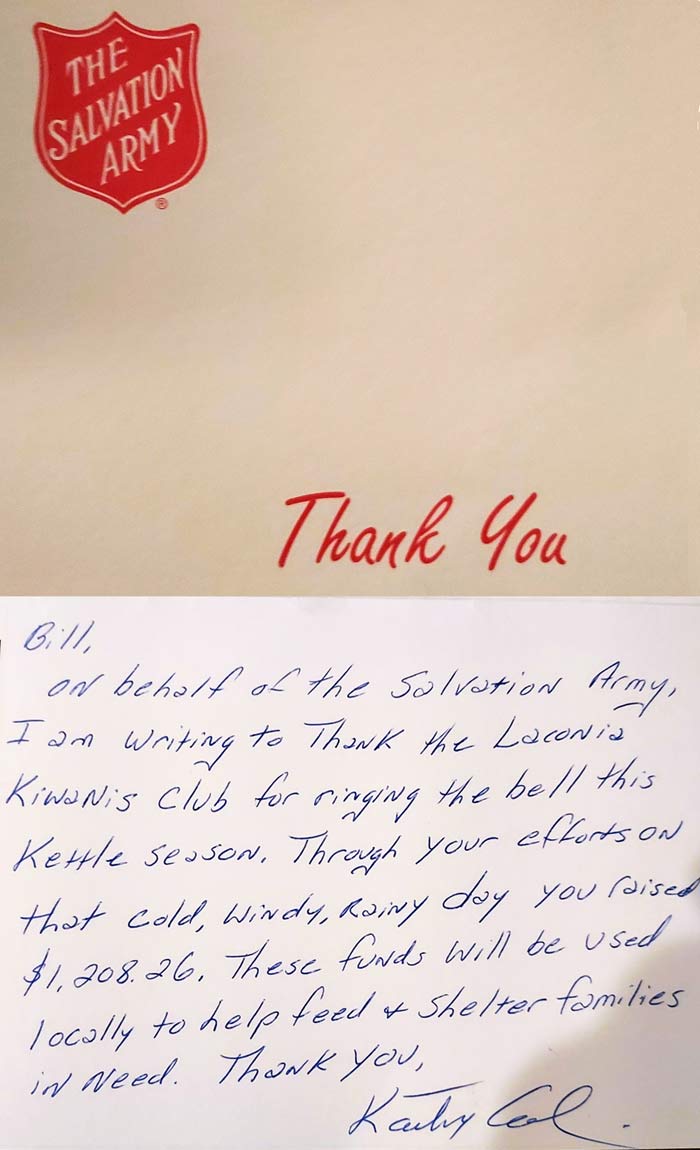 THE
SALVATION
ARMY
®
Thank You
Bill,
on behalf of the Salvation Army,
I am writing to Thank the Laconia
Kiwanis Club for ringing the bell this
Kettle season. Through your efforts on
that cold, windy, Rainy day you raised
$1,208.26. These funds will be used
locally to help feed & shelter families
in need. Thank you,
Kathy